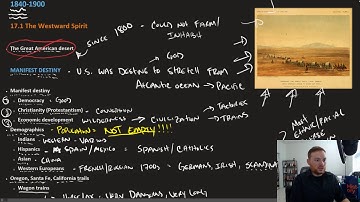 1840-1900
17.1 The Westward Spirit
The Great American desert
SINCE 1800 - COULD NOT FARM/
INHABIT
MANIFEST DESTINY
- U.S. WAS DESTINED TO STRETCH FROM
GOD
ATLANTIC OCEAN → PACIFIC
- Manifest destiny
① - Democracy - (GOD)
② - Christianity (Protestantism) - CONVERSION
③ - Economic development - WILDERNESS → CIVILIZATION → TRAINS
- Demographics - NOT EMPTY!!!!
- Indians - VARIOUS
- Hispanics - SPAIN/MEXICO = SPANISH/CATHOLICS
- Asian - CHINA
- Western Europeans - FRENCH/RUSSIAN 1700s - GERMANS, IRISH,
- Oregon, Santa Fe, California trails
- Wagon trains
VERY DANGEROUS, VERY LONG
MOST
ETHNIC/RACIAL